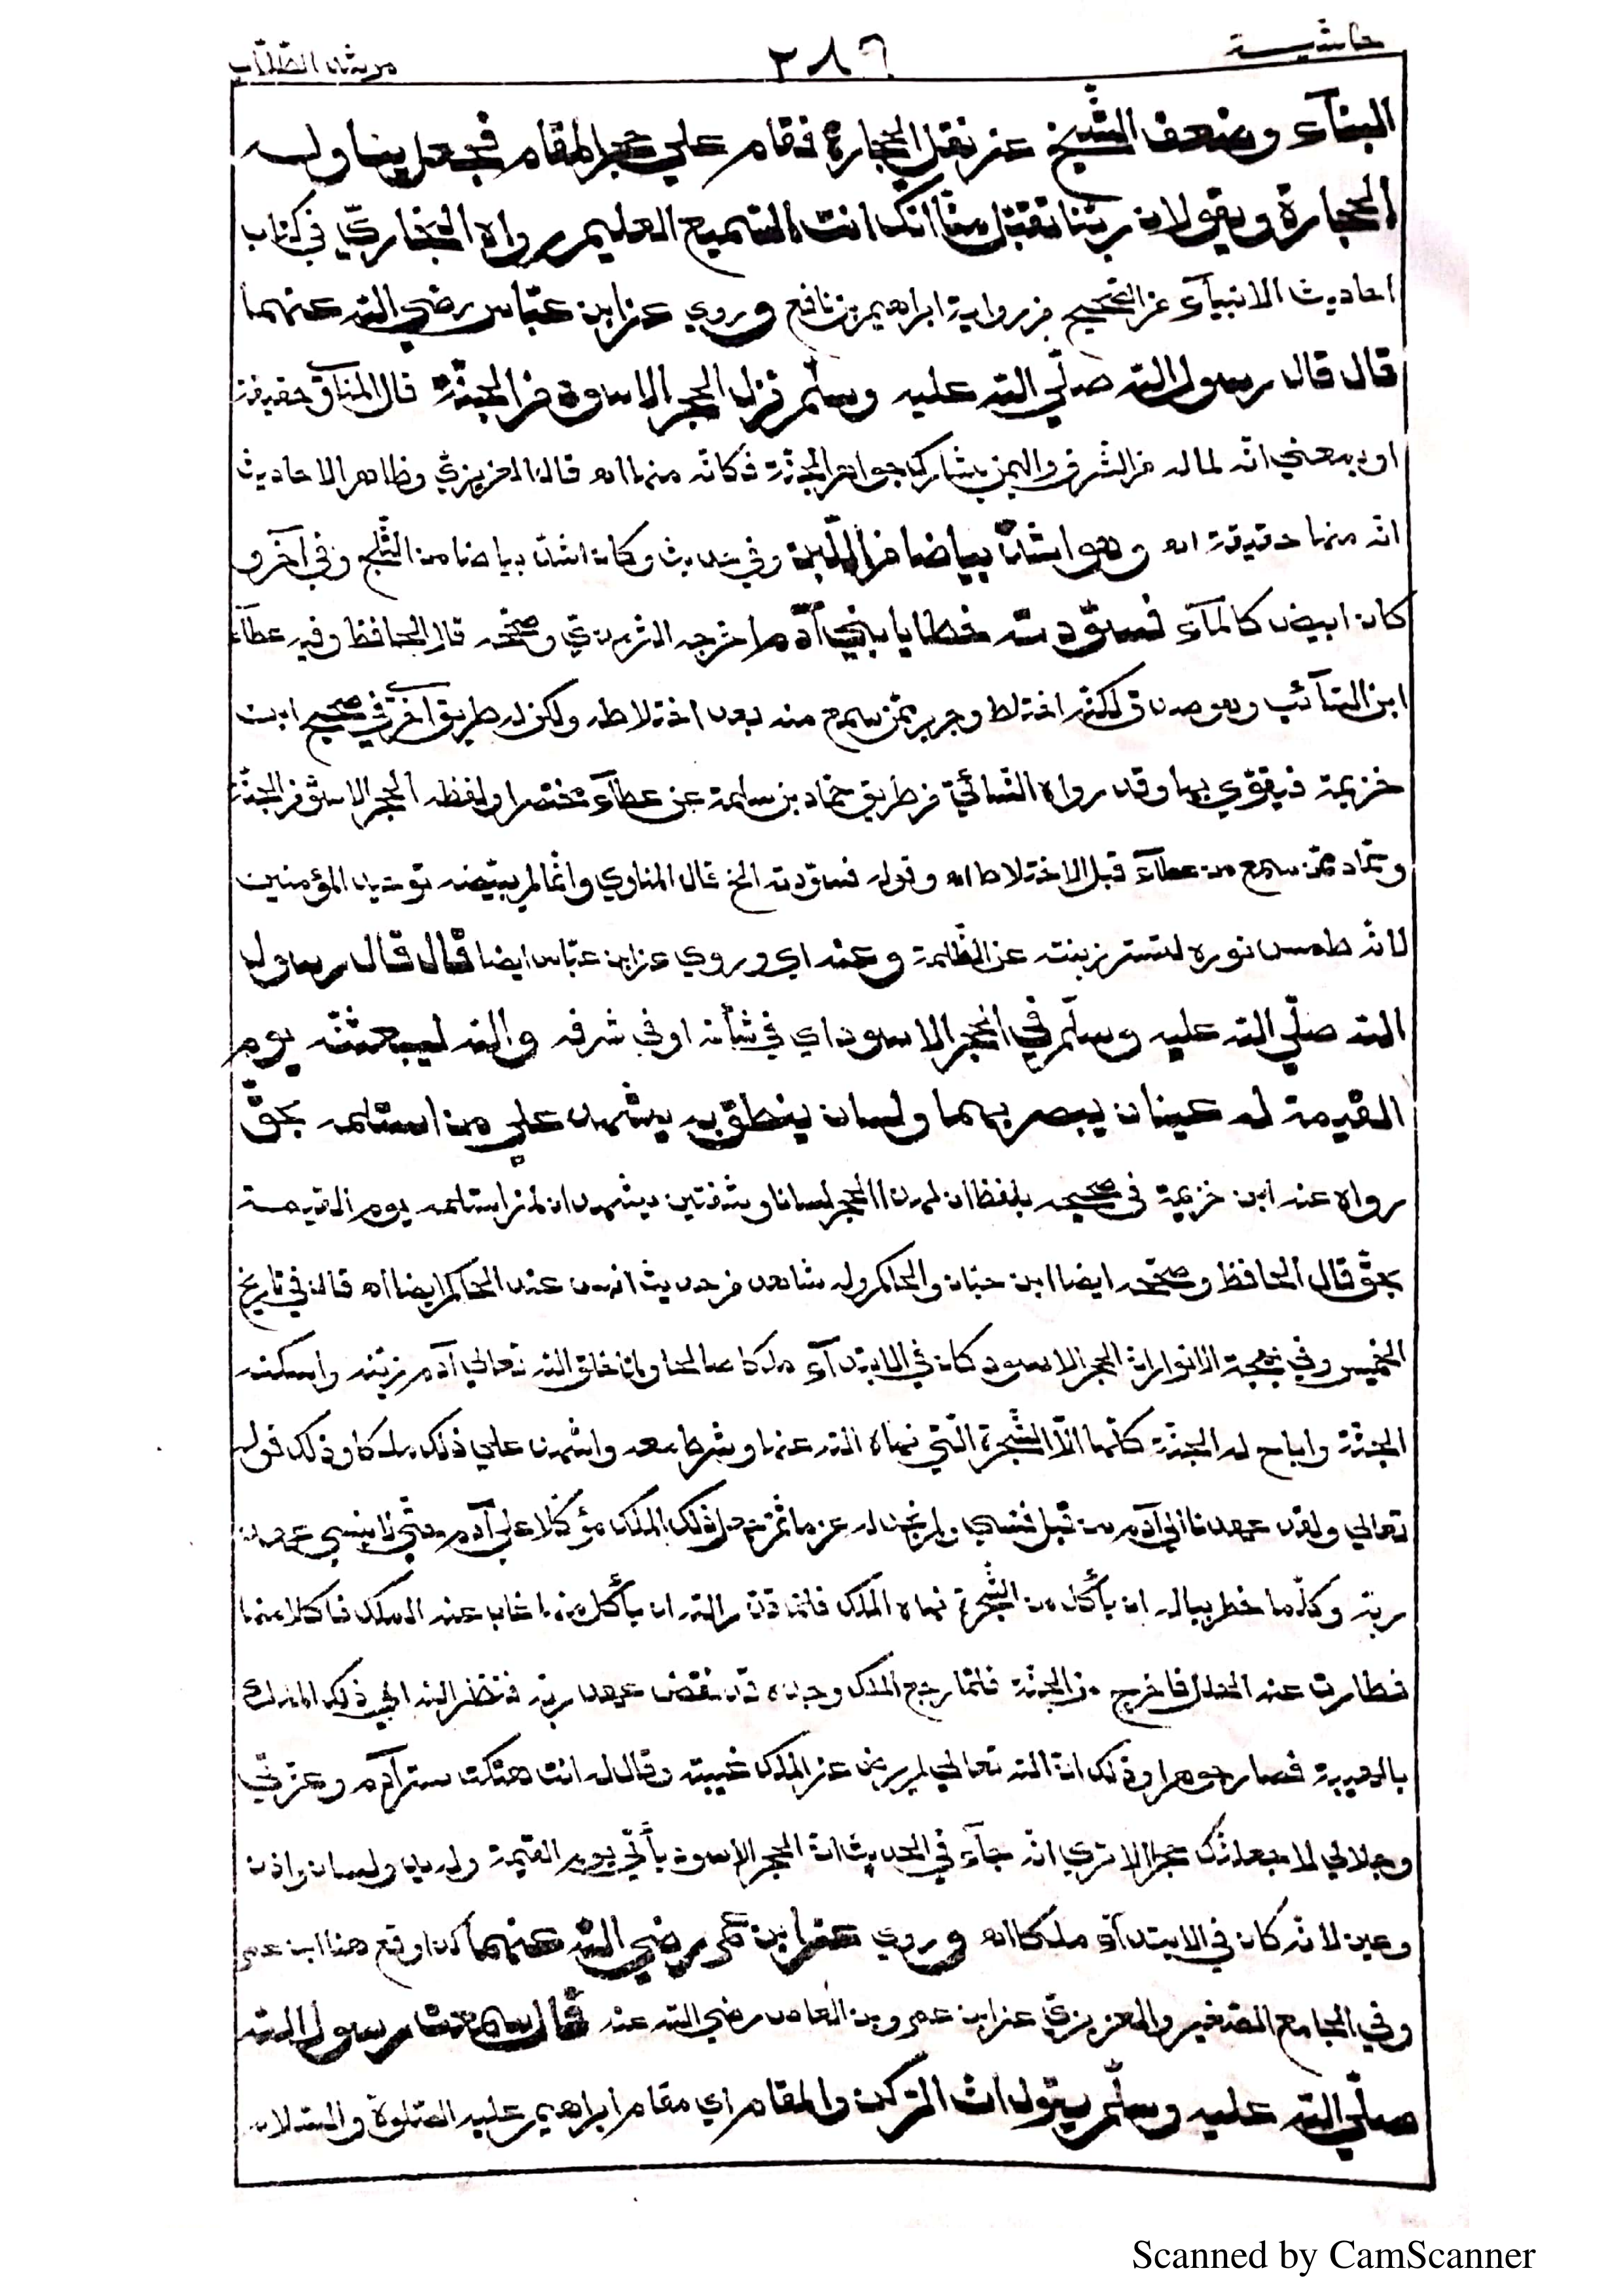 حاشية ٢٨٦ مرشد الطلاب
البنآء وضعف الشّيخ عن نقل الحجارة فقام علي حجر المقام فجعل يناوله
الحجارة ويقولان ربّنا تقبّل منّا انّك انت السّميع العليم رواه البخاريّ في كتاب
احاديث الانبيآء عن الصّحيح من رواية ابراهيم بن نافع وروي عن ابن عبّاس رضي الله عنهما
قال قال رسول الله صلّي الله عليه وسلّم نزل الحجر الاسود من الجنّة قال المناوي حقيقة
او بمعني انّه لما له من الشّرف واليمن يشارك جواهر الجنّة فكانّه منها اه قال العزيزيّ وظاهر الاحاديث
انّه منها حقيقة اه وهو اشدّ بياضا من اللّبن وفي حديث وكان اشدّ بياضا من الثّلج وفي آخر و
كان ابيض كالمآء فسوّدته خطايا بني آدم اخرجه التّرمذيّ وصحّحه قال الحافظ وفيه عطآء
ابن السّآئب وهو صدوق لكنّه اختلط وجرير ممّن سمع منه بعد اختلاطه ولكن له طريق اخري في صحيح ابن
خزيمة فيقوّي بها وقد رواه النّسائيّ من طريق حمّاد بن سلمة عن عطآء مختصرا ولفظه الحجر الاسود من الجنّة
وحمّاد ممّن سمع من عطآء قبل الاختلاط اه وقوله فسوّدته الخ قال المناوي وانّما لم يبيّضه توحيد المؤمنين
لانّه طمس نوره لتستر زينته عن الظّلمة وعنه اي وروي عن ابن عبّاس ايضا قال قال رسول
الله صلّي الله عليه وسلّم في الحجر الاسود اي في شأنه او في شرفه والله ليبعثنّه يوم
القيمة له عينان يبصر بهما ولسان ينطق به يشهد علي من استلمه بحقّ
رواه عنه ابن خزيمة في صحيحه بلفظ ان لهذا الحجر لسانا وشفتين يشهدان لمن استلمه يوم القيمة
بحقّ قال الحافظ وصحّحه ايضا ابن حبّان والحاكم وله شاهد من حديث انس عند الحاكم ايضا اه قال في تاريخ
الخميس وفي بهجة الانوار انّ الحجر الاسود كان في الابتدآء ملكا صالحا ولمّا خلق الله تعالي آدم زيّنه واسكنه
الجنّة واباح له الجنّة كلّها الّا الشّجرة الّتي نهاه الله عنها وشرط معه واشهد علي ذلك ملكا وذلك قوله
تعالي ولقد عهدنا الي آدم من قبل فنسي ولم نجد له عزما ثمّ جعل ذلك الملك مؤكّلا علي آدم حتّي لا ينسي عهد
ربّه وكلّما خطر بباله ان يأكل من الشّجرة نهاه الملك فلمّا قدّر الله ان يأكل منها غاب عنه الملك فاكلا منها
فطارت عنه الحلل فاخرج من الجنّة فلمّا رجع الملك وجده قد نقض عهد ربّه فنظر الله الي ذلك الملك
بالهيبة فصار جوهرا وذلك انّ الله تعالي لم يرض عن الملك غيبته وقال له انت هتكت ستر آدم وعزّتي
وجلالي لاجعلنّك حجرا الا تري انّه جآء في الحديث انّ الحجر الاسود يأتي يوم القيمة وله يد ولسان واذن
وعين لانّه كان في الابتدآء ملكا اه وروي عن ابن عمر رضي الله عنهما كذا وقع هنا ابن عمر
وفي الجامع الصّغير والعزيزيّ عن ابن عمرو بن العاص رضي الله عنه قال سمعت رسول الله
صلّي الله عليه وسلّم يقول انّ الرّكن والمقام اي مقام ابراهيم عليه الصّلوة والسّلام
Scanned by CamScanner